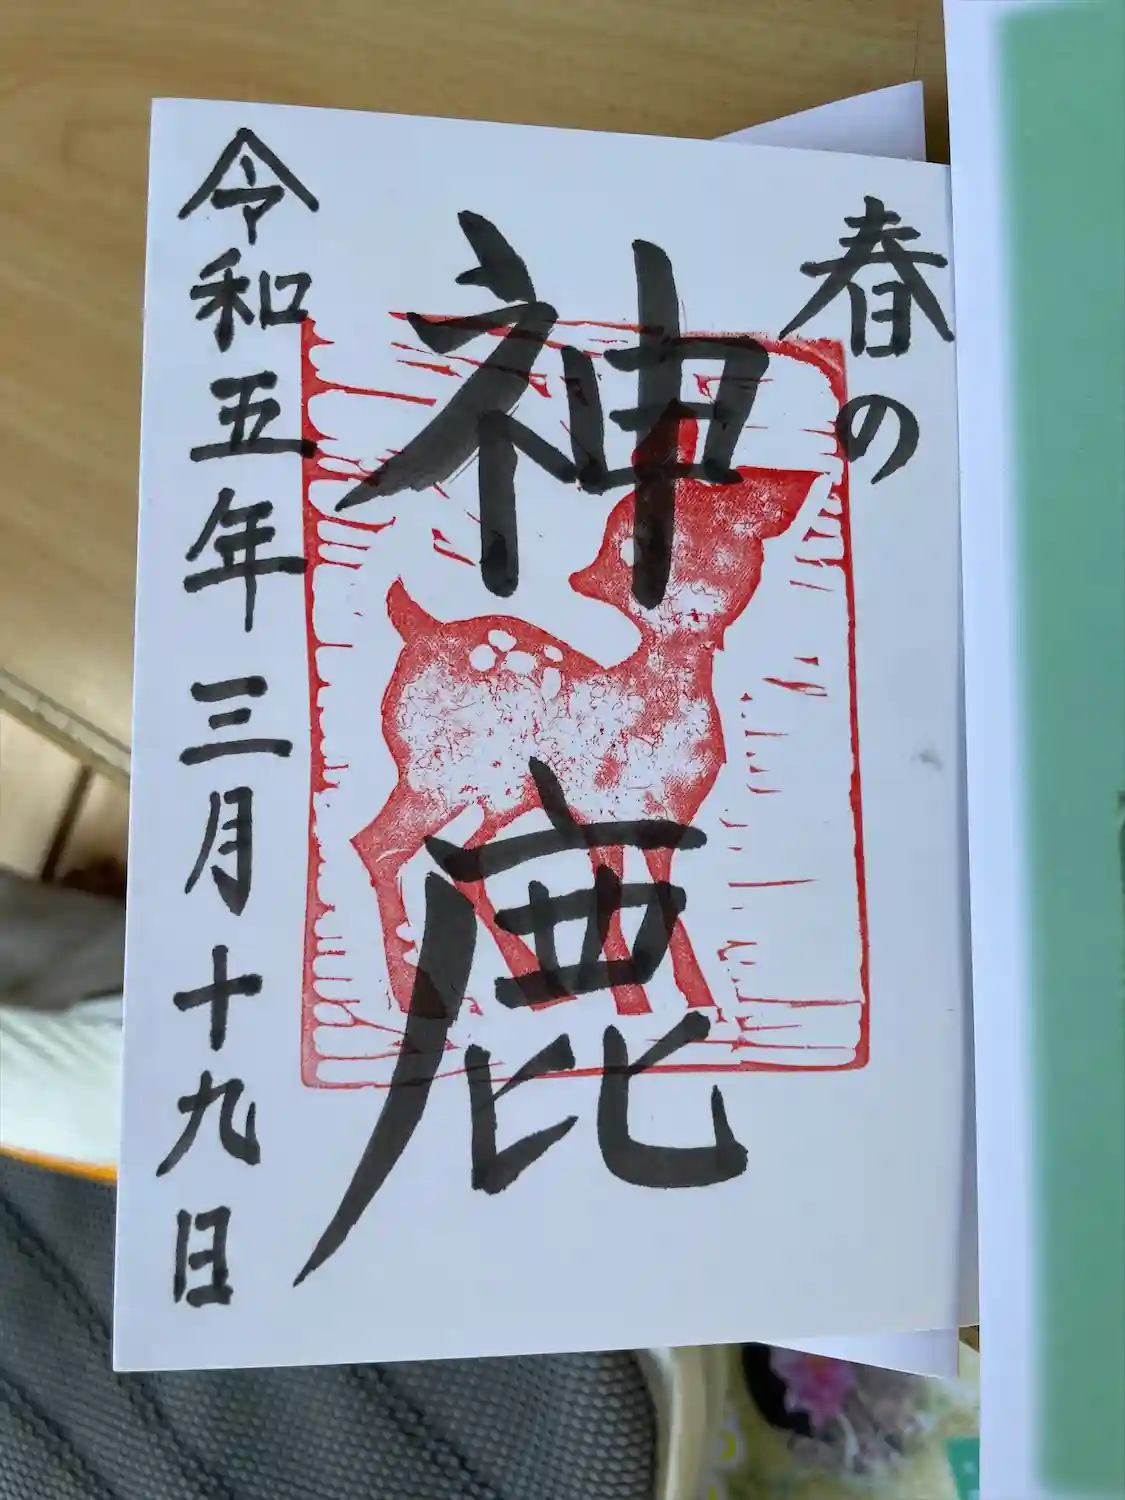 春の
神鹿
令和五年三月十九日